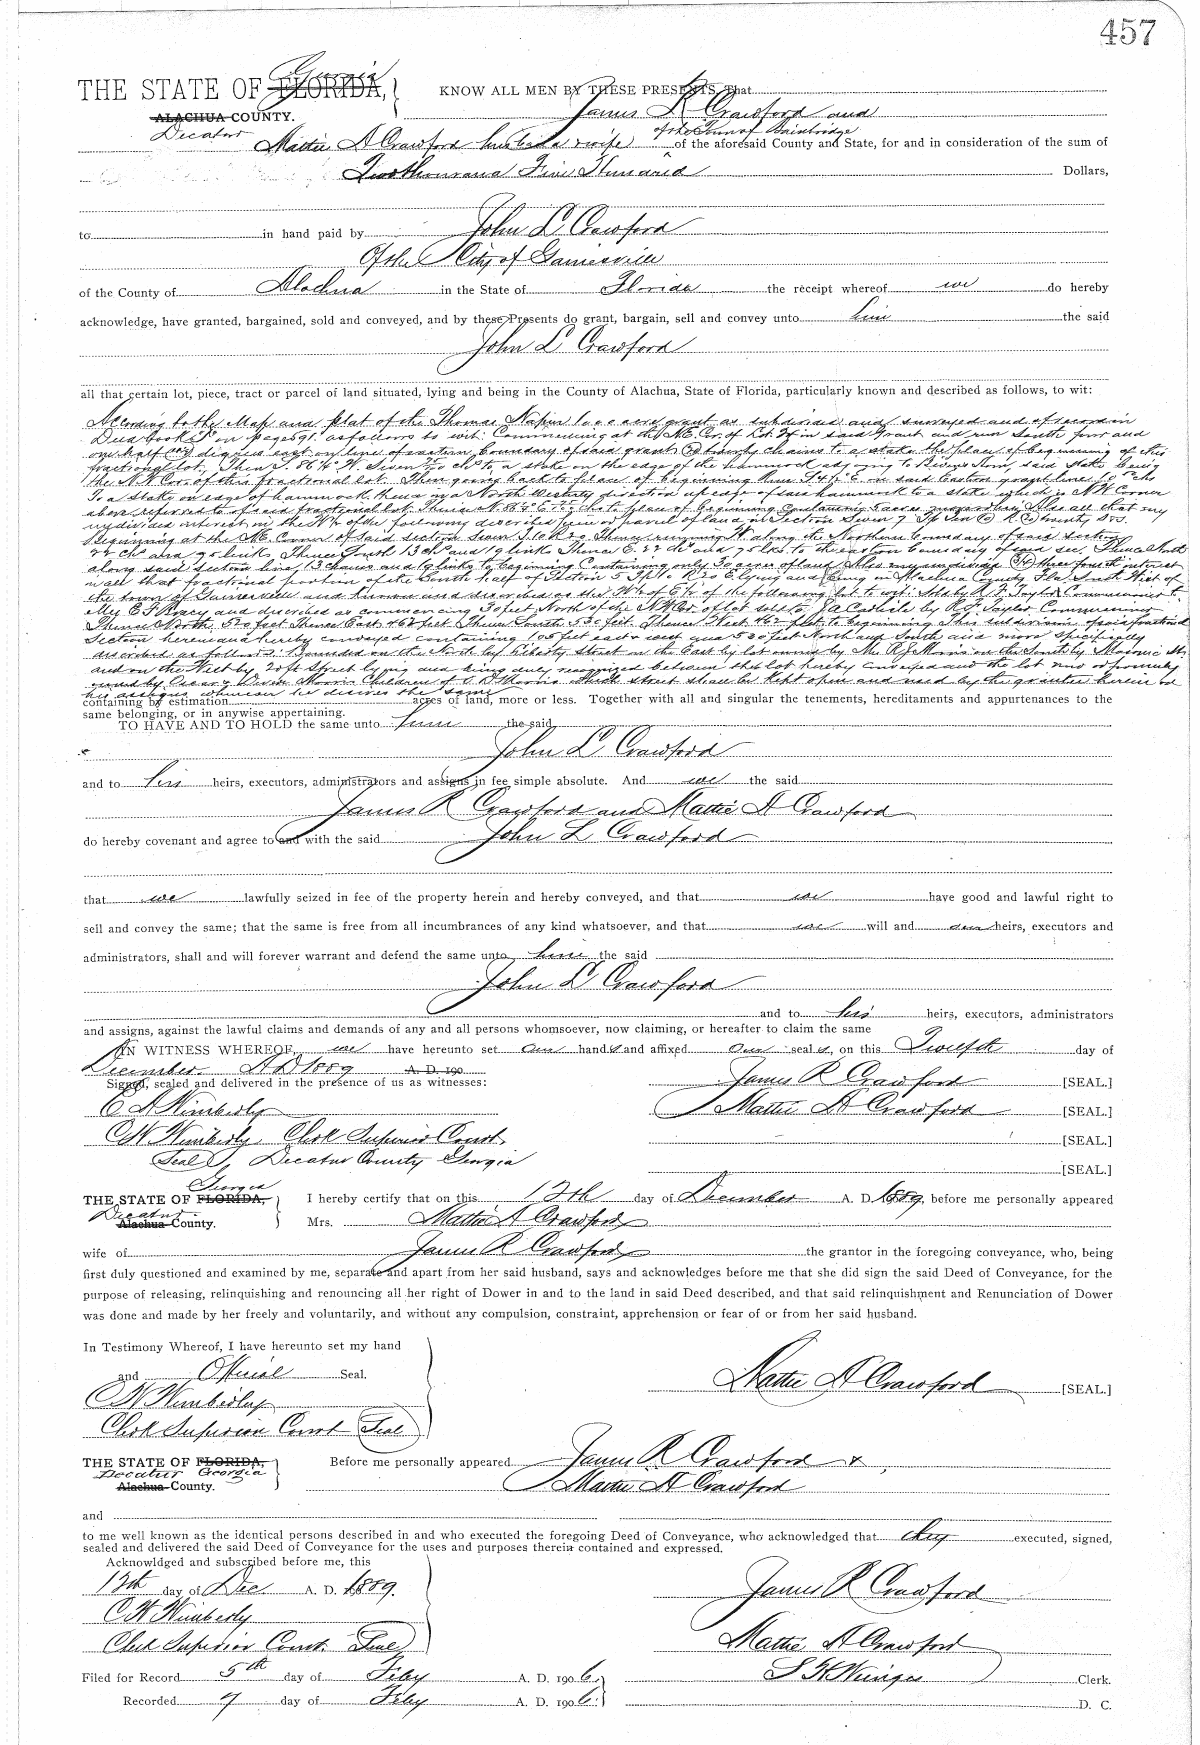 457
Georgia
THE STATE OF FLORIDA, KNOW ALL MEN BY THESE PRESENTS, That
James R Crawford and
ALACHUA COUNTY.
Decatur
of the Town of Bainbridge
Mattie A Crawford husband & wife of the aforesaid County and State, for and in consideration of the sum of
Two thousand Five Hundred Dollars,
to in hand paid by John L Crawford
Of the City of Gainesville
of the County of Alachua in the State of Florida the receipt whereof we do hereby
acknowledge, have granted, bargained, sold and conveyed, and by these Presents do grant, bargain, sell and convey unto him the said
John L Crawford
all that certain lot, piece, tract or parcel of land situated, lying and being in the County of Alachua, State of Florida, particularly known and described as follows, to wit:
According to the Map and plat of the Thomas Napier 1000 acre grant as subdivided and surveyed and of record in
Deed book on page 591. as follows to wit: Commencing at the N.E. Cor. of Lot in said Grant and run South four and
one half degrees east on line of eastern boundary of said grant twenty chains to a stake the place of beginning of this
fractional lot, Then S. 86¼ W. Seven chs to a stake on the edge of the hammock adjoining to said stake being
the N.W. Cor. of this fractional lot. Then going back to place of beginning thence S 4½ E on said Eastern grant line
To a stake on edge of hammock, thence in a North Westerly direction up edge of said hammock to a stake which is N.W. Corner
above referred to of said fractional lot Thence N. to place of beginning Containing 5 acres Also all that my
undivided interest in the of the following described piece or parcel of land in Section Seven 7 Tp Ten R. twenty
Beginning at the N.E. Corner of said section Seven Thence running W. along the Northern boundary of said section
22 chs and 75 links, Thence South 13 chs and 19 links Thence E. 22 chs and 75 lks. to the eastern boundary of said sec. Thence North
along said section line, 13 chains and 19 links to beginning Containing only 30 acres of land. Also my undivided three fourth interest
in all that fractional portion of the South half of Section 5 Tp 10 R 20 E lying and being in Alachua County Fla South West of
the town of Gainesville and known and described as the W½ of E½ of the following lot to wit: Sold by R.F. Taylor Commissioner to
and described as commencing 30 feet North of the N.W. Cor of lot sold to J A Carlisle by R.F. Taylor Commissioner
Thence North 530 feet Thence East 462 feet Thence South 530 feet Thence West 462 feet to beginning This subdivision of said fractional
Section herein and hereby conveyed containing 105 feet east & west and 530 feet North and South and more specifically
described as follows: Bounded on the North by Liberty Street on the East by lot owned by Mr. R.J. Morris on the South by Masonic St.
and on the West by 20 ft street lying and being duly recognized between the lot hereby conveyed and the lot now or formerly
owned by Oscar & Children of Morris street shall be kept open and used by the grantee herein or
his assigns whenever he desires the same
containing by estimation acres of land, more or less. Together with all and singular the tenements, hereditaments and appurtenances to the
same belonging, or in anywise appertaining.
TO HAVE AND TO HOLD the same unto him the said
John L Crawford
and to his heirs, executors, administrators and assigns in fee simple absolute. And we the said
James R Crawford and Mattie A Crawford
do hereby covenant and agree to and with the said John L Crawford
that we lawfully seized in fee of the property herein and hereby conveyed, and that we have good and lawful right to
sell and convey the same; that the same is free from all incumbrances of any kind whatsoever, and that we will and our heirs, executors and
administrators, shall and will forever warrant and defend the same unto him the said
John L Crawford
and to his heirs, executors, administrators
and assigns, against the lawful claims and demands of any and all persons whomsoever, now claiming, or hereafter to claim the same
IN WITNESS WHEREOF, we have hereunto set our hands and affixed our seals, on this Twelfth day of
December A D 1889 A. D. 190
Signed, sealed and delivered in the presence of us as witnesses: James R Crawford [SEAL.]
E A Wimberly Mattie A Crawford [SEAL.]
C W Wimberly Clerk Superior Court [SEAL.]
Seal Decatur County Georgia [SEAL.]
Georgia
THE STATE OF FLORIDA, I hereby certify that on this 12th day of December A. D. 1889, before me personally appeared
Decatur
Alachua County. Mrs. Mattie A Crawford
wife of James R Crawford the grantor in the foregoing conveyance, who, being
first duly questioned and examined by me, separate and apart from her said husband, says and acknowledges before me that she did sign the said Deed of Conveyance, for the
purpose of releasing, relinquishing and renouncing all her right of Dower in and to the land in said Deed described, and that said relinquishment and Renunciation of Dower
was done and made by her freely and voluntarily, and without any compulsion, constraint, apprehension or fear of or from her said husband.
In Testimony Whereof, I have hereunto set my hand
and Official Seal. Mattie A Crawford [SEAL.]
C W Wimberly
Clerk Superior Court Seal
THE STATE OF FLORIDA, Before me personally appeared James R Crawford &
Decatur Georgia
Alachua County. Mattie A Crawford
and
to me well known as the identical persons described in and who executed the foregoing Deed of Conveyance, who acknowledged that they executed, signed,
sealed and delivered the said Deed of Conveyance for the uses and purposes therein contained and expressed.
Acknowldged and subscribed before me, this
12th day of Dec. A. D. 1889. James R Crawford
C W Wimberly
Clerk Superior Court. Seal Mattie A Crawford
Filed for Record 5th day of Feby A. D. 1906. S H Wienges Clerk.
Recorded 7 day of Feby A. D. 1906. D. C.